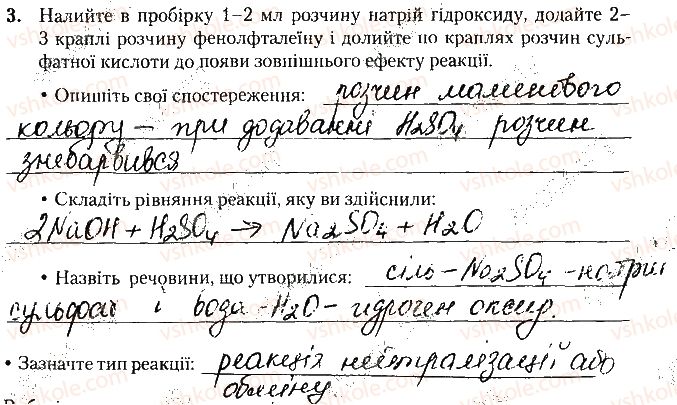 3. Налийте в пробірку 1–2 мл розчину натрій гідроксиду, додайте 2–
3 краплі розчину фенолфталеїну і долийте по краплях розчин суль-
фатної кислоти до появи зовнішнього ефекту реакції.
• Опишіть свої спостереження: розчин малинового
кольору – при додаванні H₂SO₄ розчин
знебарвився
• Складіть рівняння реакції, яку ви здійснили:
2NaOH + H₂SO₄ → Na₂SO₄ + H₂O
• Назвіть речовини, що утворилися: сіль – Na₂SO₄ - натрій
сульфат і вода - H₂O - гідроген оксид.
• Зазначте тип реакції: реакція нейтралізації або
обміну
vshkole.com